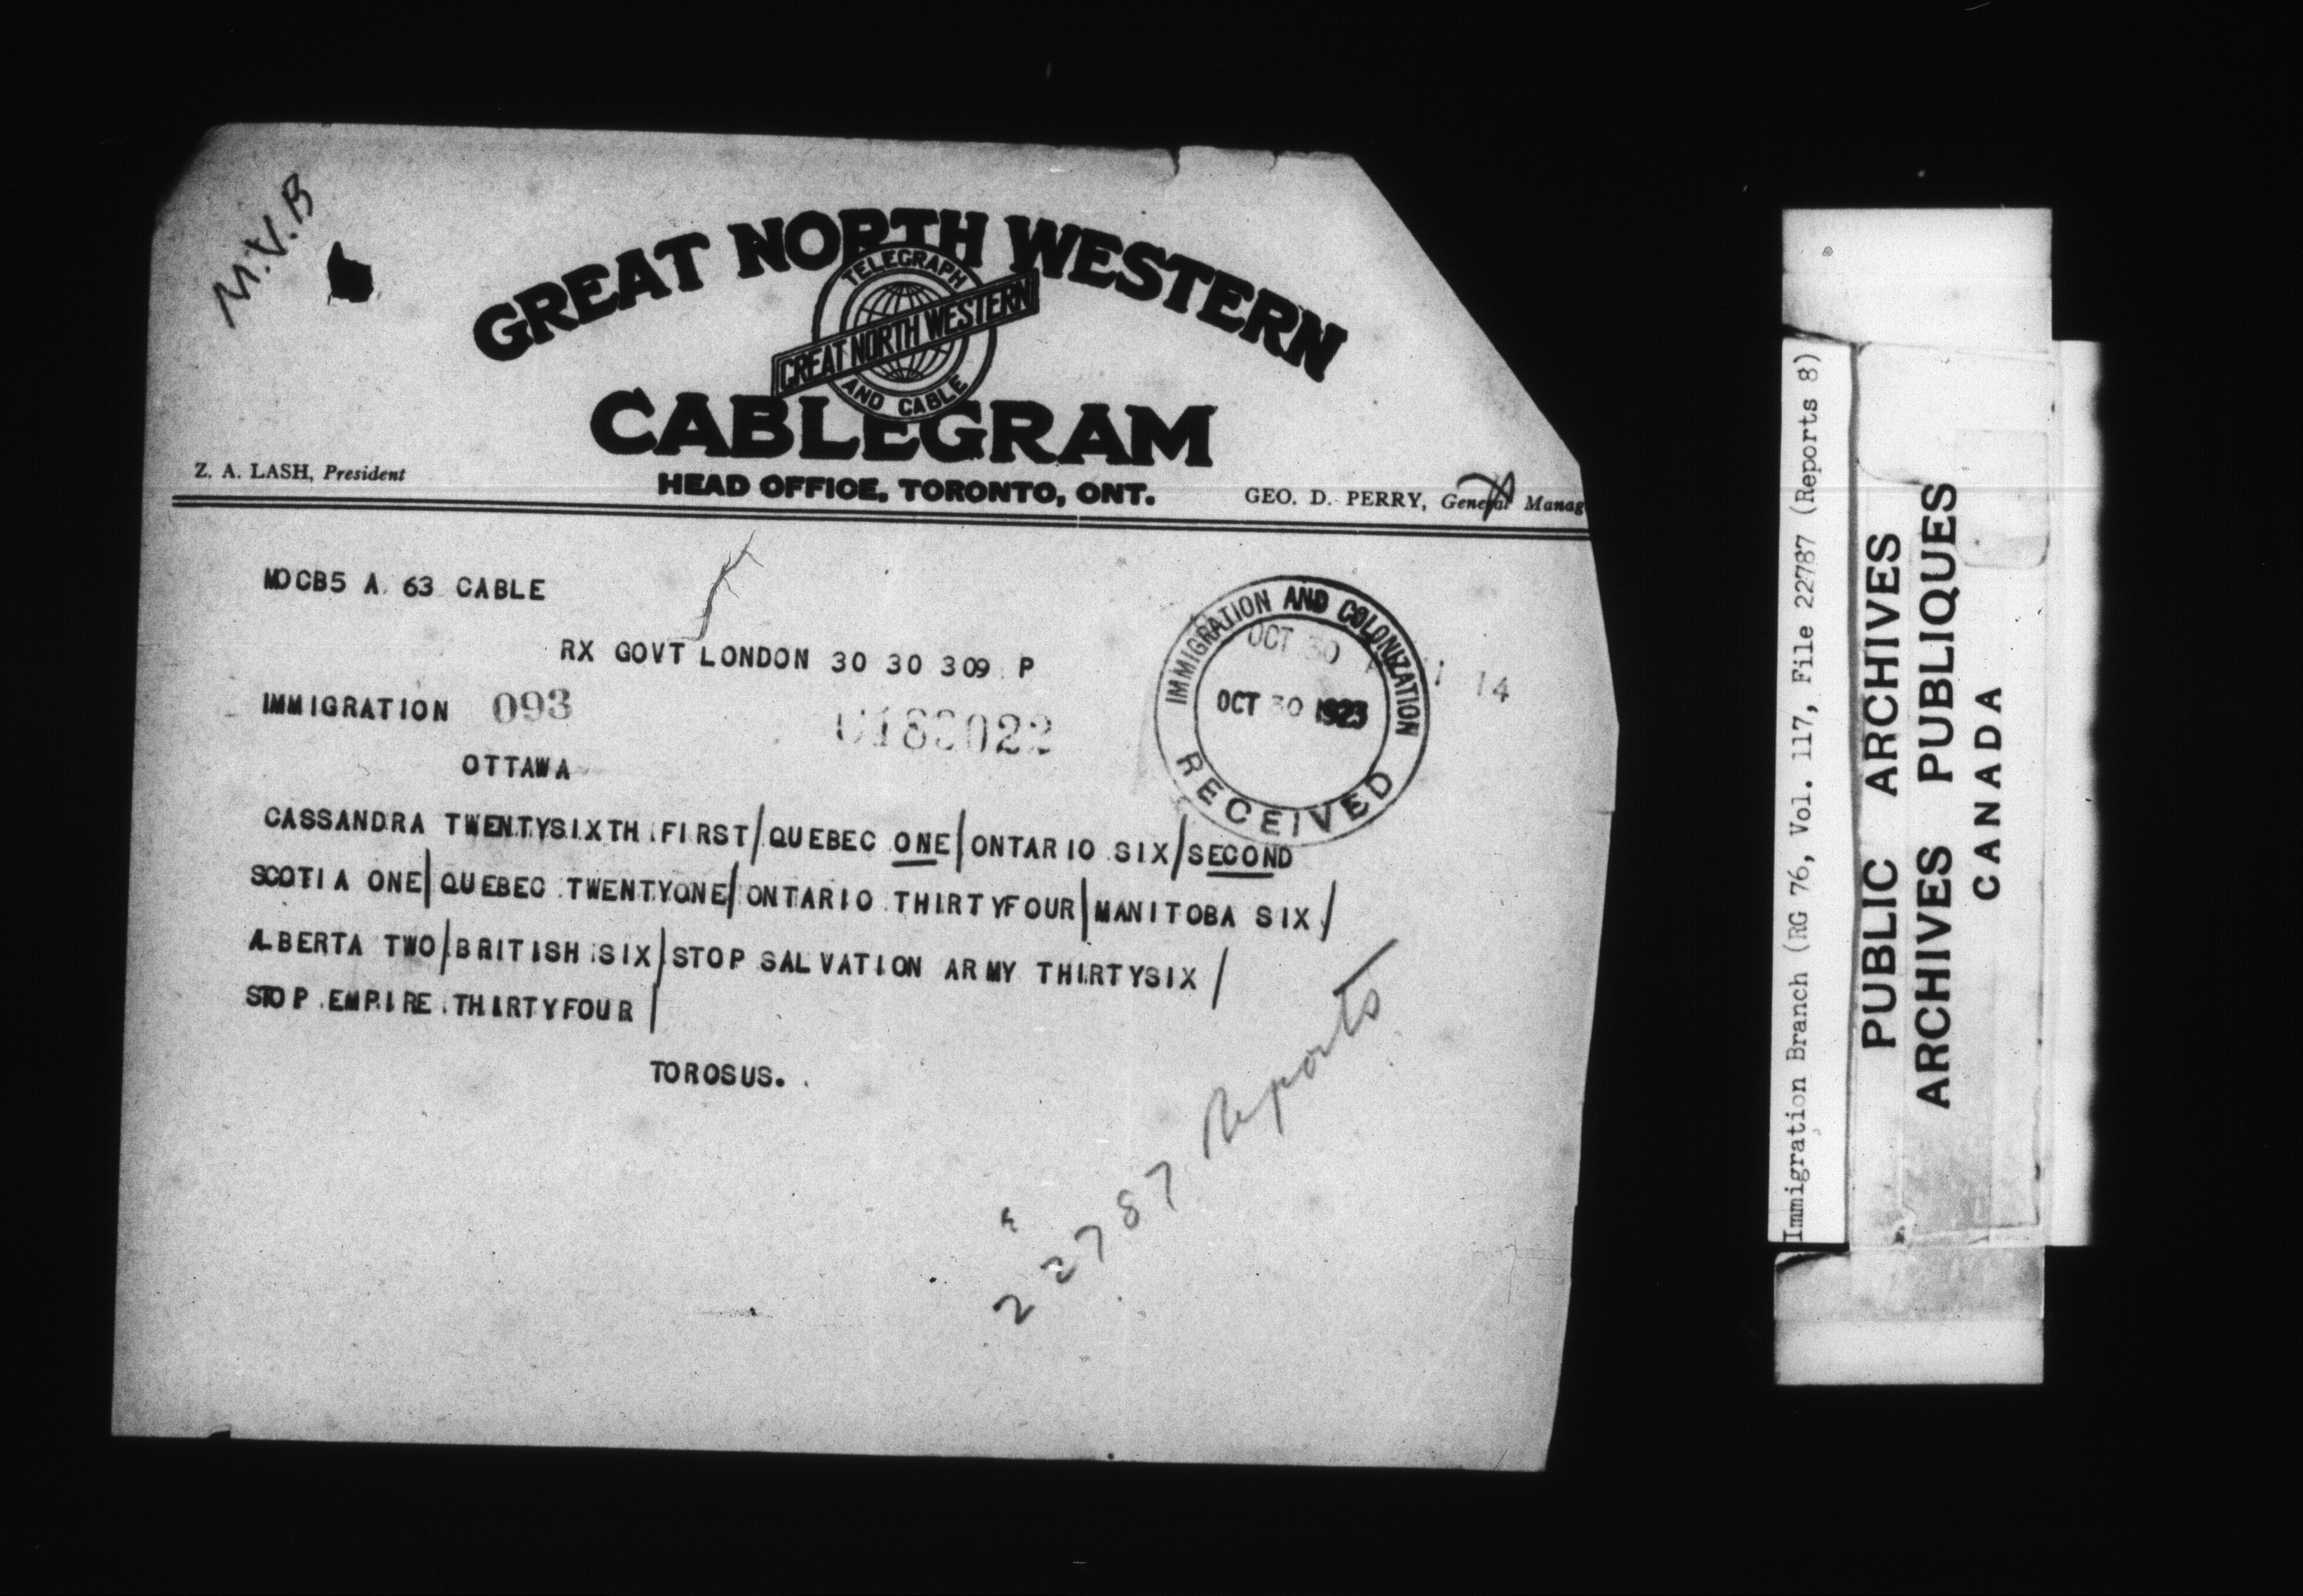 M.V.B
GREAT NORTH WESTERN
TELEGRAPH
GREAT NORTH WESTERN
AND CABLE
CABLEGRAM
Z. A. LASH, President
HEAD OFFICE, TORONTO, ONT.
GEO. D. PERRY, General Manag
MDCB5 A 63 CABLE
RX GOVT LONDON 30 30 309 P
IMMIGRATION 093
OTTAWA
IMMIGRATION AND COLONIZATION
OCT 30 14
OCT 30 1923
RECEIVED
CASSANDRA TWENTYSIXTH FIRST/QUEBEC ONE/ONTARIO SIX/SECOND
SCOTIA ONE/QUEBEC TWENTYONE/ONTARIO THIRTYFOUR/MANITOBA SIX/
ALBERTA TWO/BRITISH SIX/STOP SALVATION ARMY THIRTYSIX/
STOP EMPIRE THIRTYFOUR/
TOROSUS.
22787 Reports
Immigration Branch (RG 76, Vol. 117, File 22787 (Reports 8)
PUBLIC ARCHIVES
ARCHIVES PUBLIQUES
CANADA